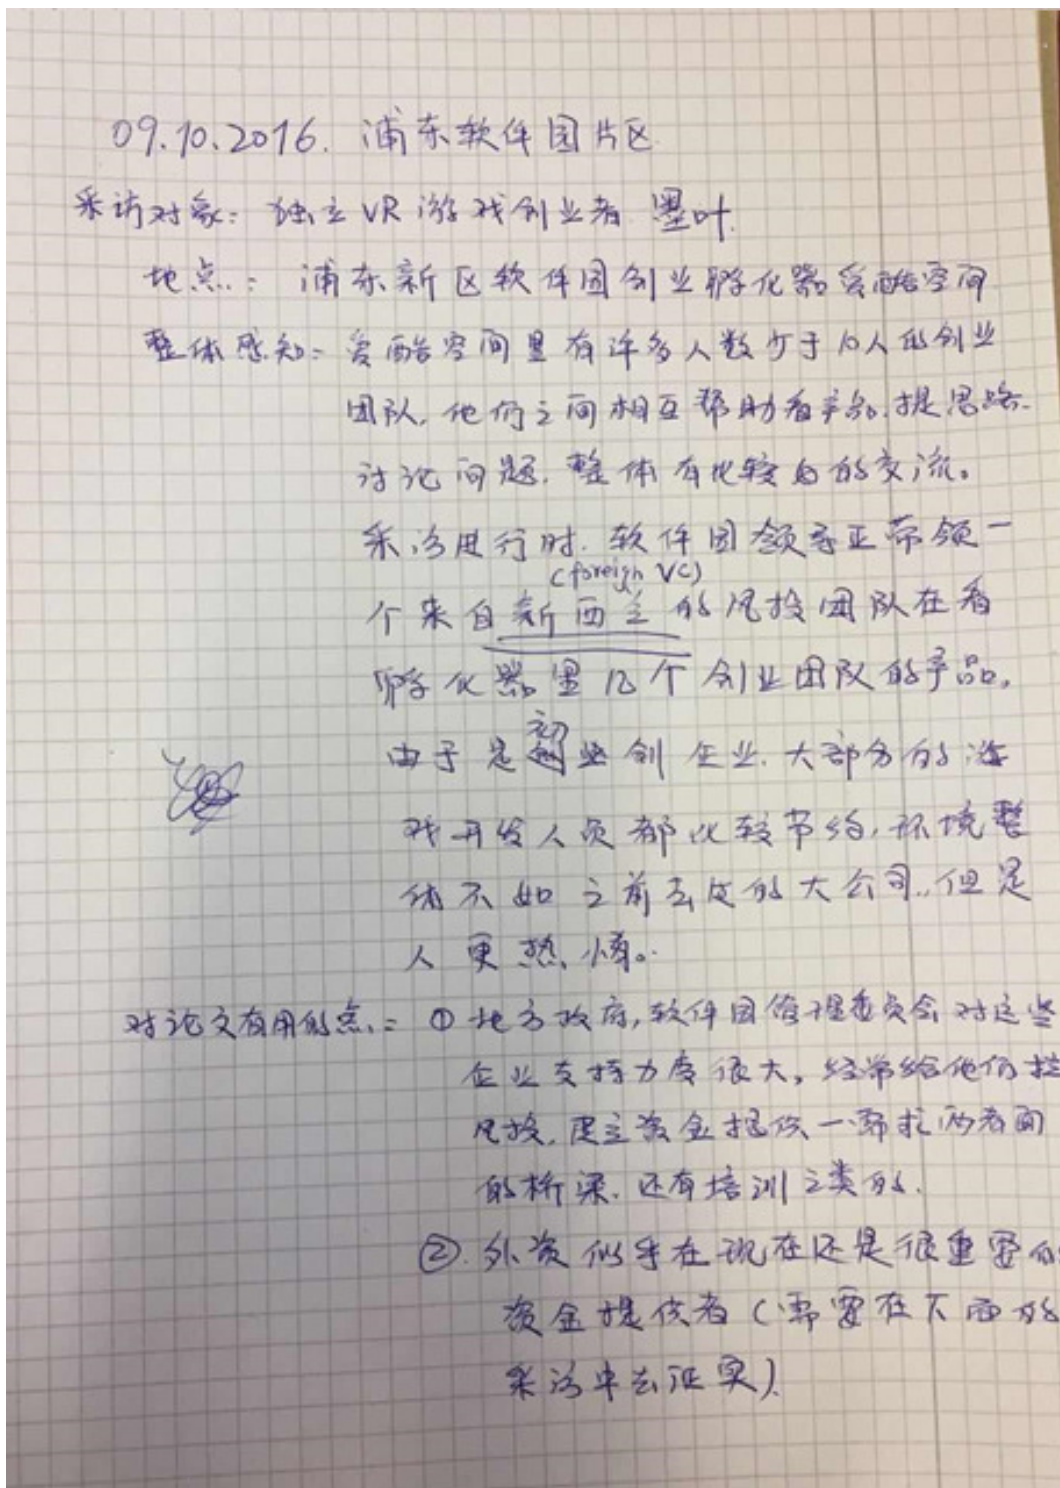 09.10.2016. 浦东软件园片区
采访对象: 独立VR游戏创业者 墨叶.
地点: 浦东新区软件园创业孵化器爱酷空间
整体感知: 爱酷空间里有许多人数少于10人的创业
团队, 他们之间相互帮助看产品, 提思路.
讨论问题. 整体有比较的交流。
采访进行时. 软件园领导正带领一
(foreign VC)
个来自新西兰的风投团队在看
孵化器里几个创业团队的产品.
由于是初创企业. 大部分的游
戏开发人员都比较节约, 环境整
体不如之前去过的大公司, 但是
人更热情。
对论文有用的点: ① 地方政府, 软件园管理委员会对这些
企业支持力度很大, 经常给他们找
风投, 建立资金提供—需求两者间
的桥梁. 还有培训之类的.
②. 外资似乎在现在还是很重要的
资金提供者 (需要在下面的
采访中去证实).